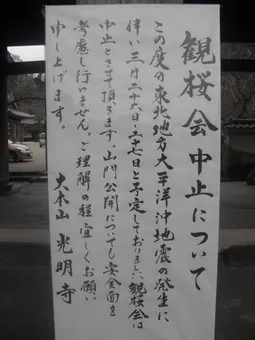 観桜会中止について
この度の東北地方太平洋沖地震の発生に
伴い三月二十六日、二十七日と予定しておりました観桜会は
中止とさせて頂きます。山門公開についても安全面を
考慮し行いません。ご理解の程宜しくお願い
申し上げます。
大本山 光明寺